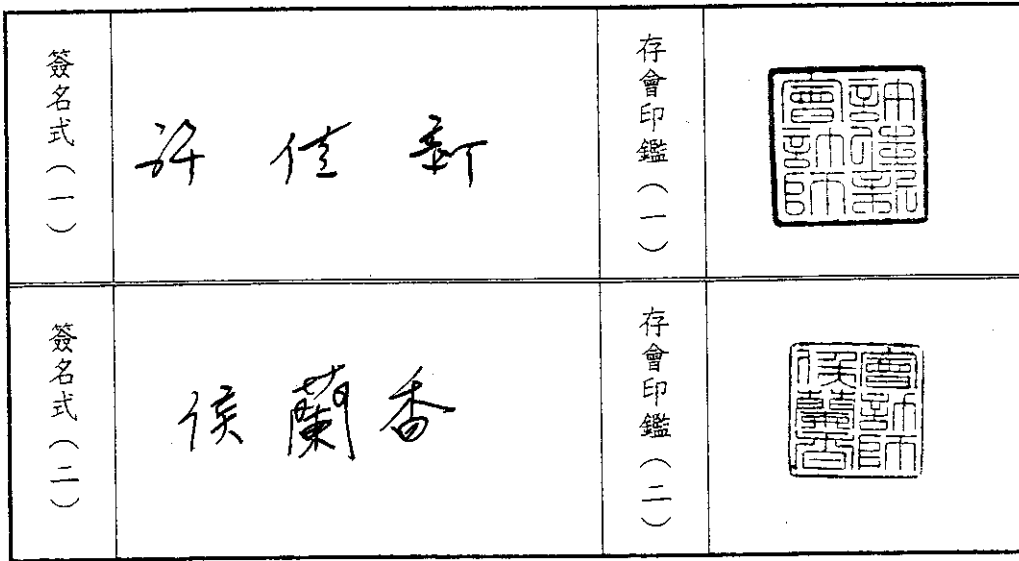 簽名式(一)
許佳新
存會印鑑(一)
許佳新會計師
簽名式(二)
侯蘭香
存會印鑑(二)
會計師侯蘭香